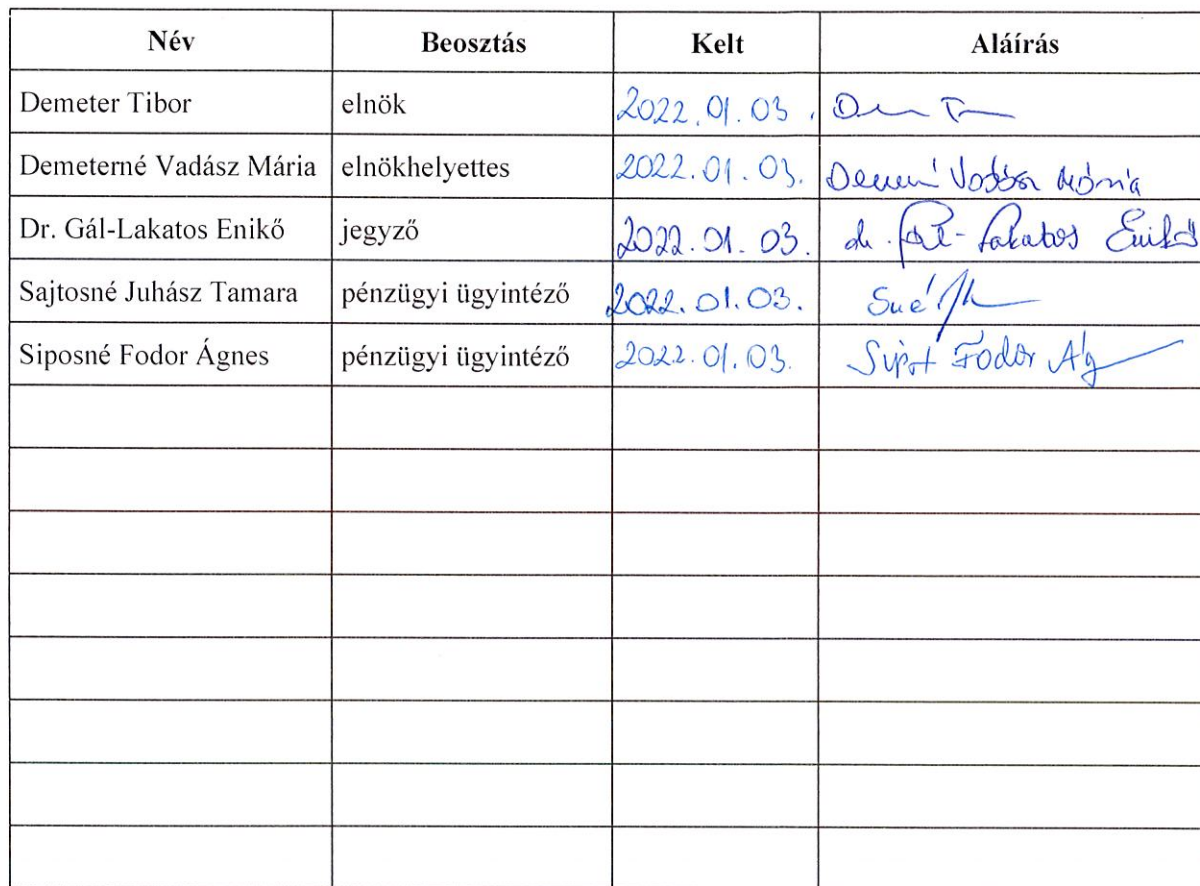 Név Beosztás Kelt Aláírás
Demeter Tibor elnök 2022.01.03.
Demeterné Vadász Mária elnökhelyettes 2022.01.03. Vadász Mária
Dr. Gál-Lakatos Enikő jegyző 2022.01.03. dr. Gál-Lakatos Enikő
Sajtosné Juhász Tamara pénzügyi ügyintéző 2022.01.03.
Siposné Fodor Ágnes pénzügyi ügyintéző 2022.01.03. Fodor Ág